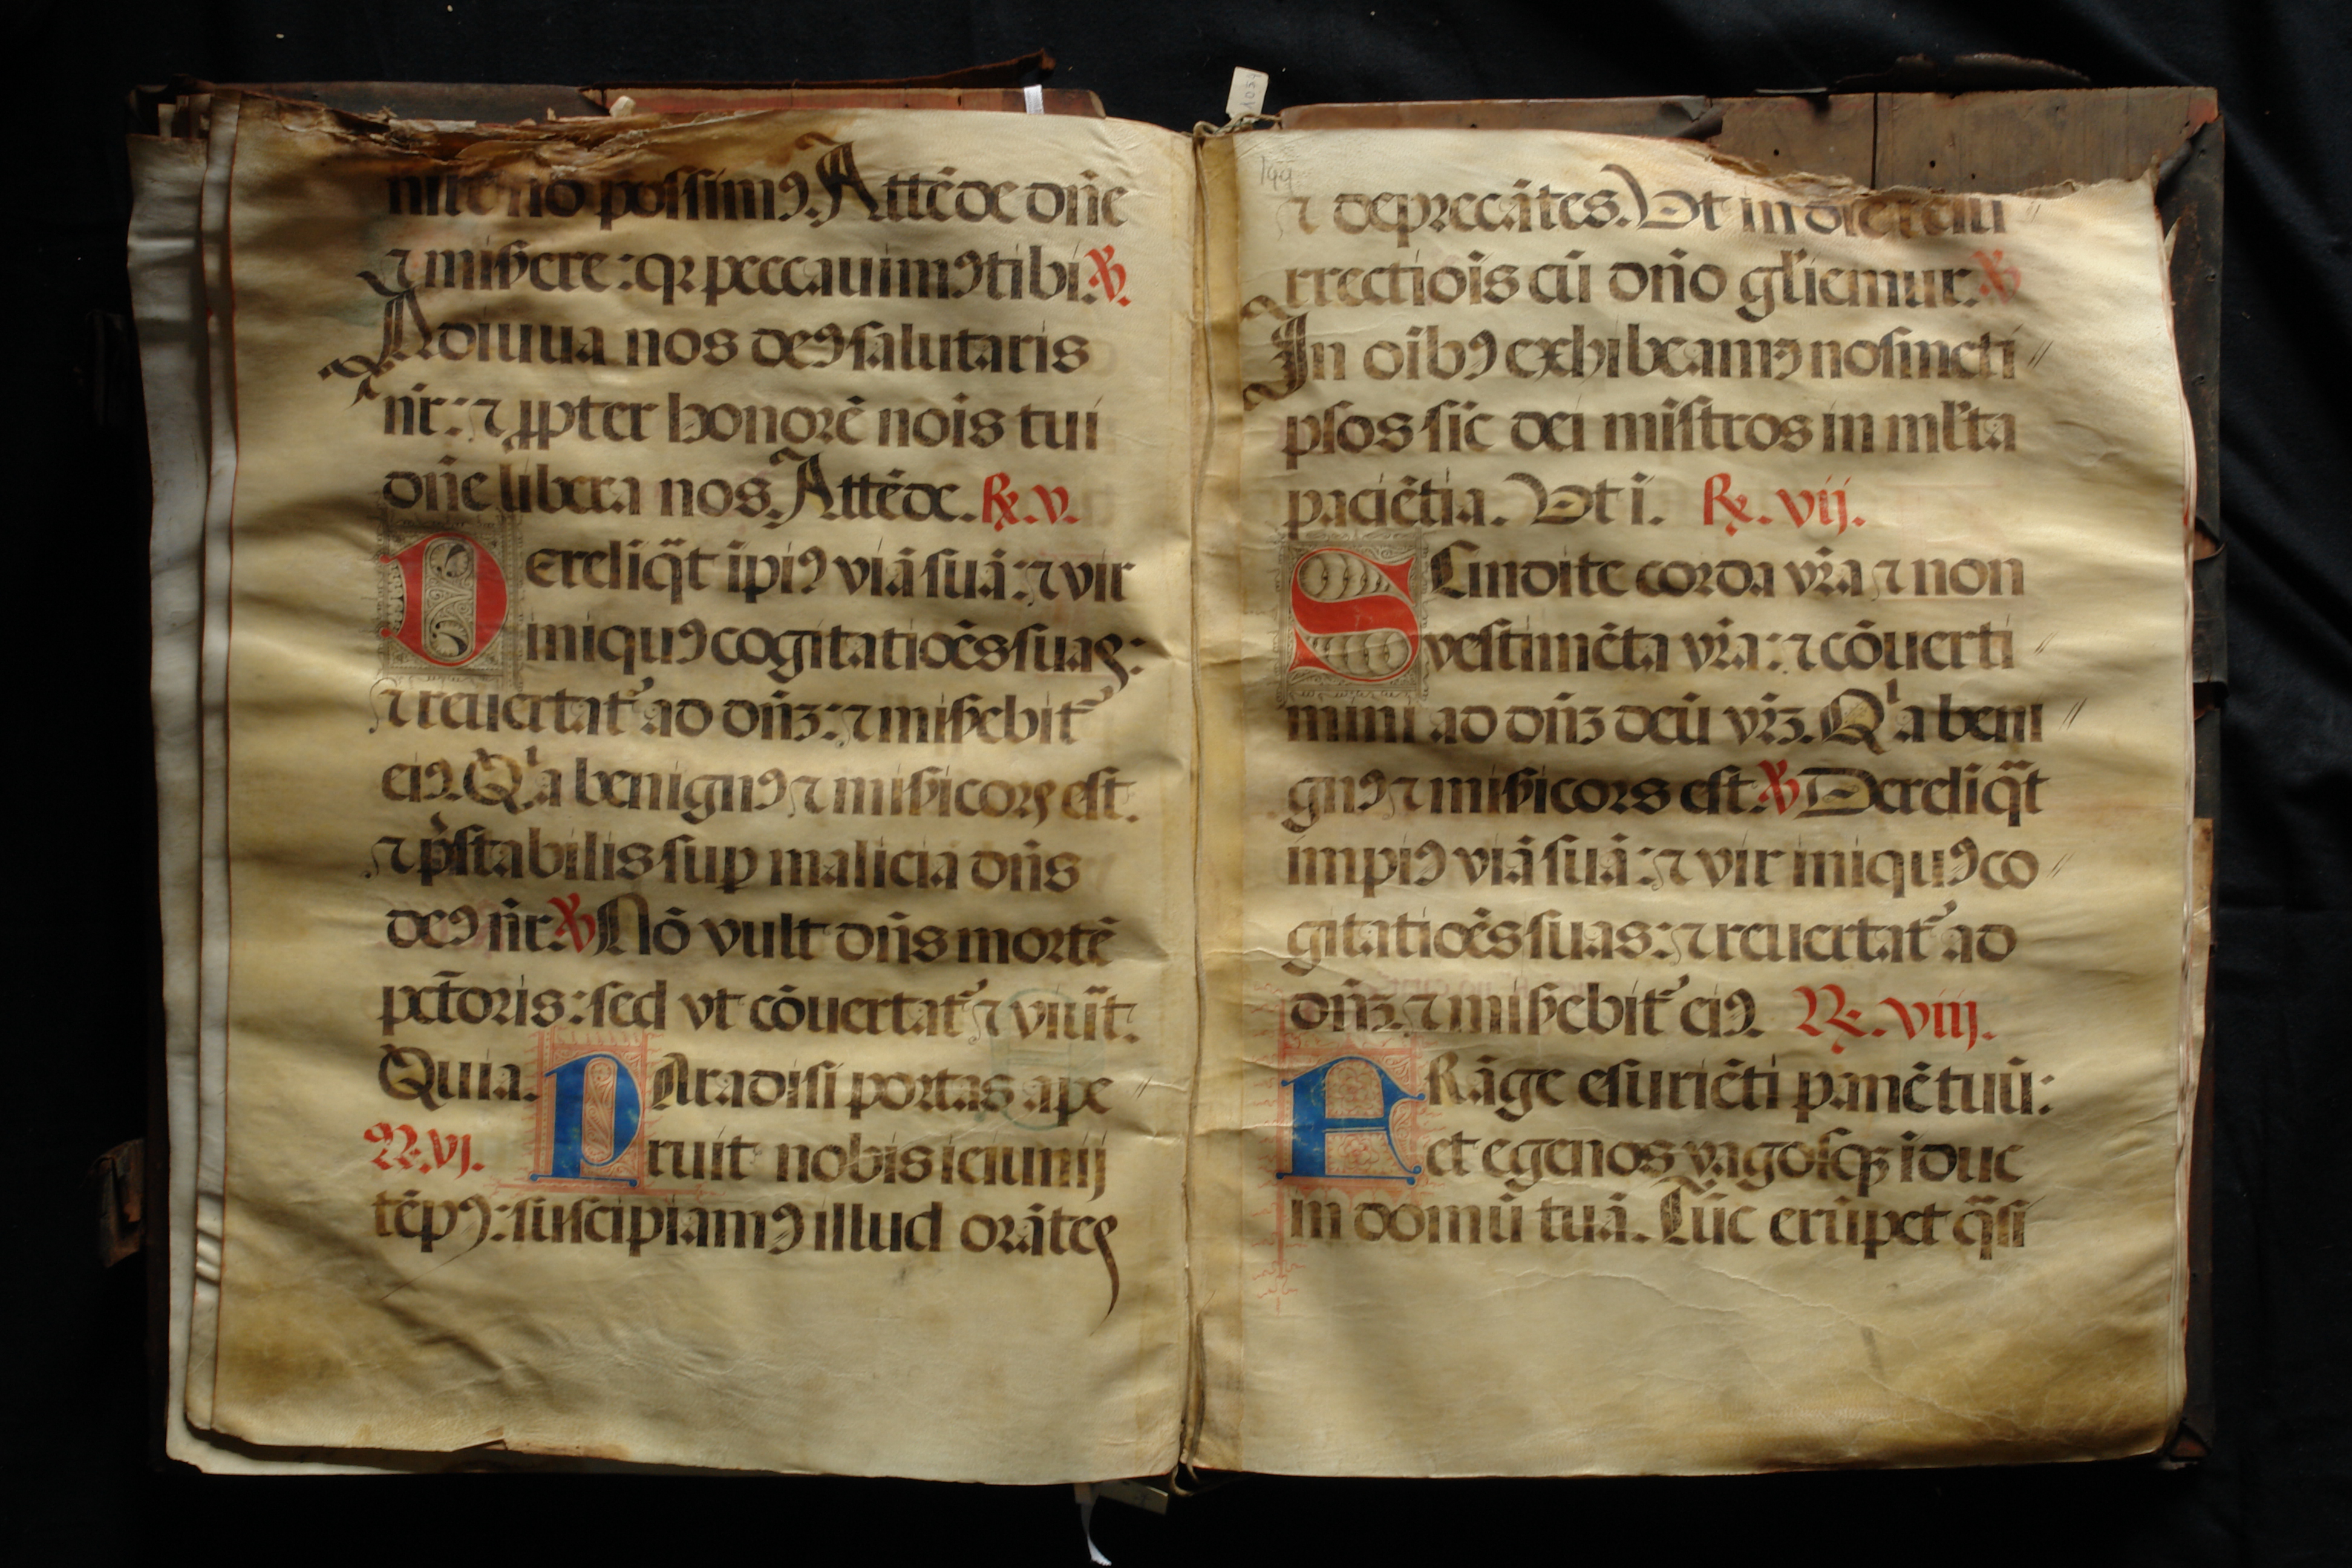 nire nō possimꝰ. Attēde dn̄e
⁊ miẞere: qꝛ peccauimꝰ tibi. ℣.
Adiuua nos deꝰ salutaris
nr̄: ⁊ ꝓpter honorē noīs tui
dn̄e libera nos. Attēde. ℟. v.
Derelīq̄t īpiꝰ viā suā: ⁊ vir
iniquꝰ cogitatiōēs suas:
⁊ reuertat᷑ ad dn̄ꝫ: ⁊ miẞebit᷑
eiꝰ. Qͥa benignꝰ ⁊ miẞicors est.
⁊ p̄stabilis suꝑ maliciā dn̄s
deꝰ nr̄. ℣ Nō vult dn̄s mortē
pct̄oris: sed vt cōuertat᷑ ⁊ viuāt.
Quia. Paradisi portas ape
℟. vj. ruit nobis ieiunij
tēpꝰ: suscipiamꝰ illud orātes
199
⁊ deprecātes. Ut in die resu
rrectiōis cū dn̄o gl̄iemur. ℣
In oībꝰ exhibeamꝰ nosmeti
psos sic̄ dei mīstros in ml̄ta
paciētia. Ut i. ℟. vij.
SCindite corda vr̄a ⁊ non
vestimēta vr̄a: ⁊ cōuerti
mini ad dn̄ꝫ deū vr̄ꝫ. Qͥa beni
gnꝰ ⁊ miẞicors est. ℣ Dereliq̄t
impiꝰ viā suā: ⁊ vir iniquꝰ co
gitatiōēs suas: ⁊ reuertat᷑ ad
dn̄ꝫ. ⁊ miẞebit᷑ eiꝰ. ℟. viij.
FRāge esuriēti panē tuū:
et egenos vagosqꝫ īduc
in domū tuā. Tūc erūpet q̄si